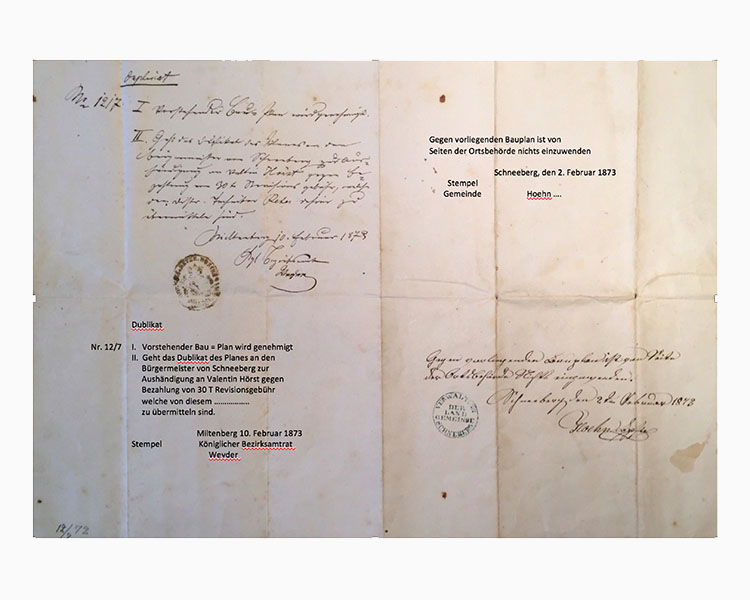 Duplicat
No 12/7
I. Vorstehender Bau = Plan wird genehmigt.
II. Geht das Duplikat des Planes an den
Bürgermeister von Schneeberg zur Aus-
händigung an Valtin Hörst gegen Be-
zahlung von 30 Revisionsgebühr, welche
übermitteln sind.
Miltenberg 10. Februar 1873
Kgl. Bezirksamt
Dublikat
Nr. 12/7 I. Vorstehender Bau = Plan wird genehmigt
II. Geht das Dublikat des Planes an den
Bürgermeister von Schneeberg zur
Aushändigung an Valentin Hörst gegen
Bezahlung von 30 T Revisionsgebühr
welche von diesem ..................
zu übermitteln sind.
Miltenberg 10. Februar 1873
Stempel Königlicher Bezirksamtrat
Wevder
Gegen vorliegenden Bauplan ist von
Seiten der Ortsbehörde nichts einzuwenden
Schneeberg, den 2. Februar 1873
Stempel
Gemeinde Hoehn ....
Gegen vorliegenden Bauplan ist von Seite
der Ortsbehörde Nichts einzuwenden.
Schneeberg, den 2ten Februar 1873
VERWALTUNG
DER
LAND
GEMEINDE
SCHNEEBERG
Hoehn